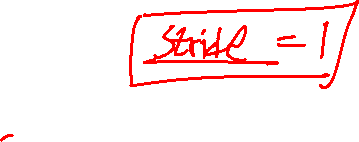 Stride = 1